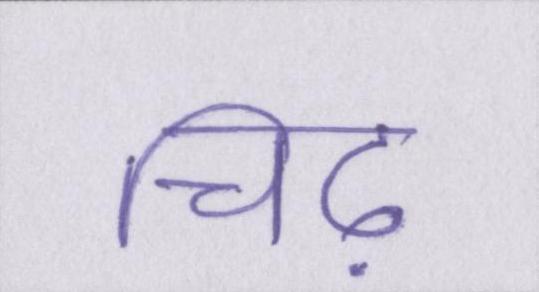 चिढ़